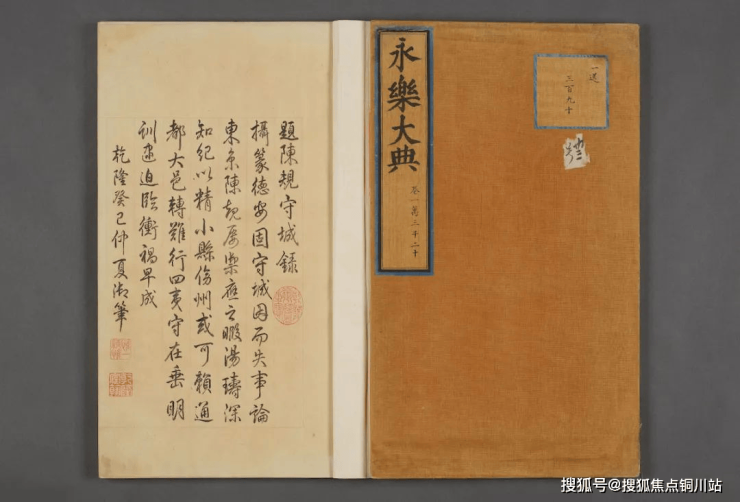 一送
三百九十
永樂大典
卷一萬三千二十
題陳規守城錄
攝篆德安固守城因而失事論
東京陳規屢禦應之暇湯璹深
知紀以精小縣傍州或可賴通
都大邑轉難行四夷守在垂明
訓逮迫臨衝禍早成
乾隆癸巳仲夏御筆
搜狐号@搜狐焦点铜川站